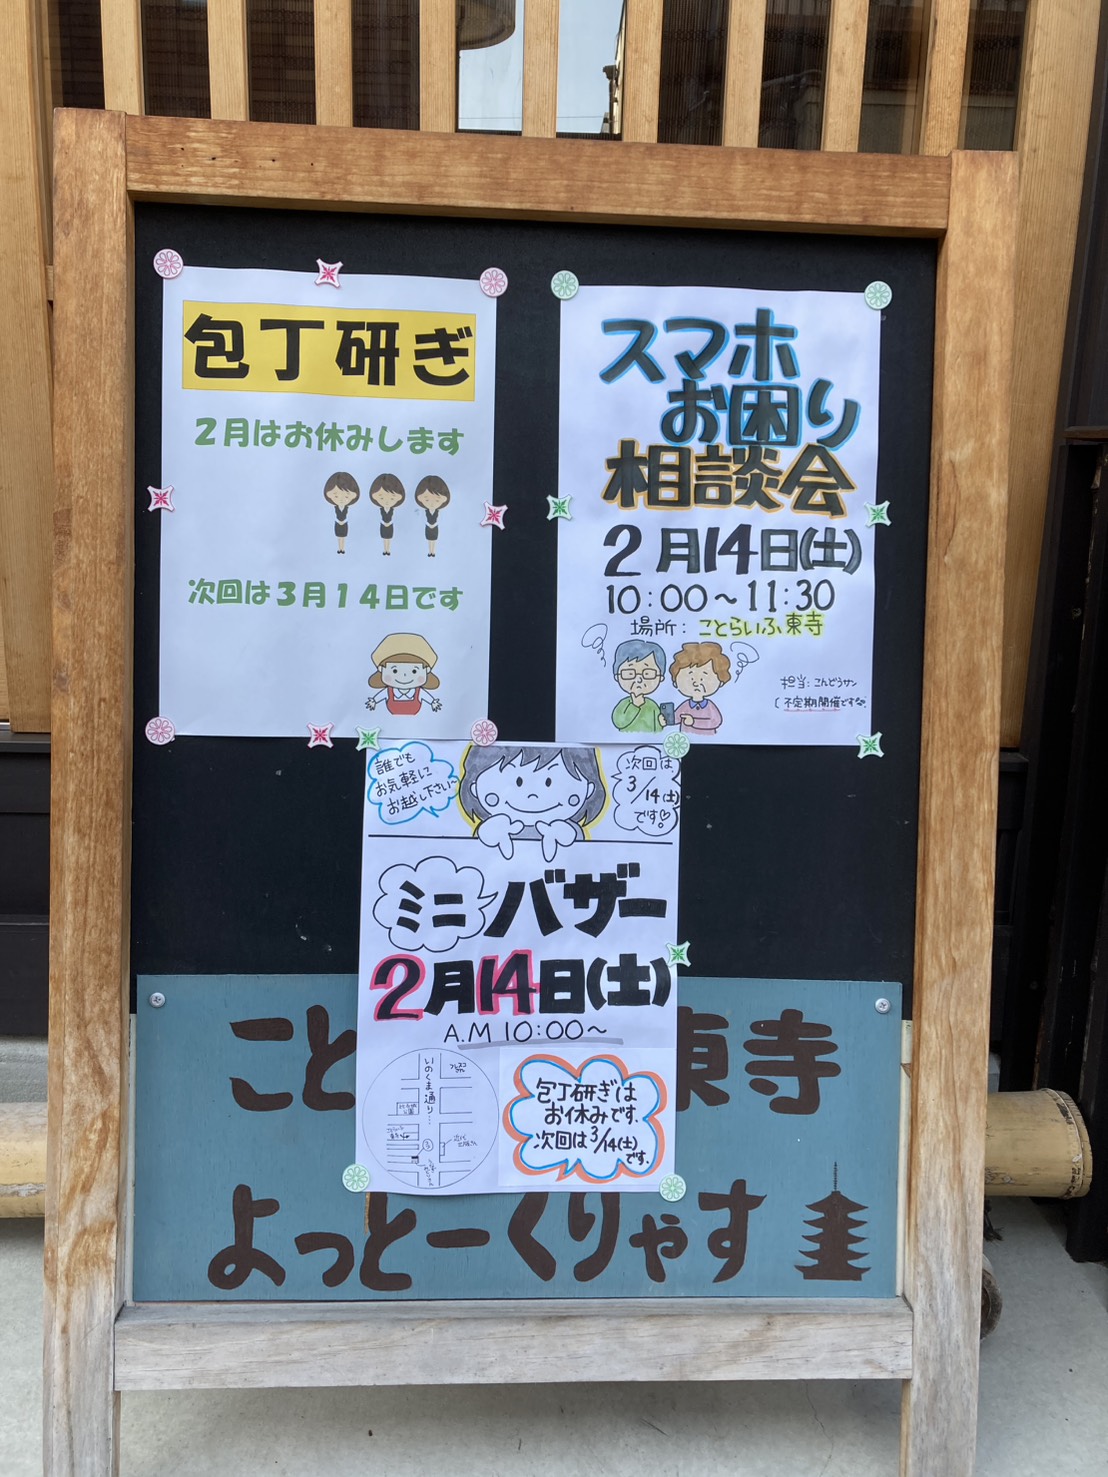 包丁研ぎ
2月はお休みします
次回は3月14日です
スマホ
お困り
相談会
2月14日(土)
10:00～11:30
場所: ことらいふ東寺
担当:こんどうサン
(不定期開催です
誰でも
お気軽に
お越し下さい～
次回は
3/14(土)
です♡
ミニバザー
2月14日(土)
A.M 10:00～
いのくま通り…
包丁研ぎは
お休みです。
次回は3/14(土)
です。
こと
東寺
よっとーくりゃす